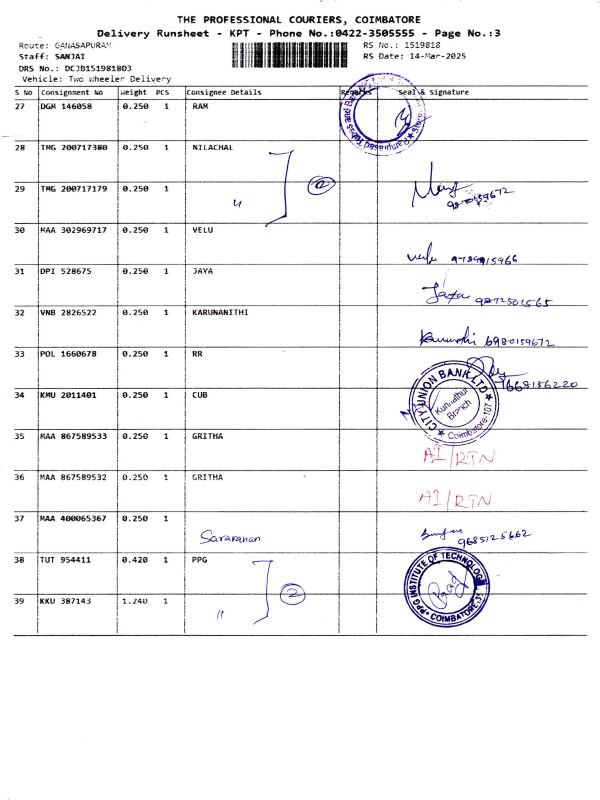 THE PROFESSIONAL COURIERS, COIMBATORE
Delivery Runsheet - KPT - Phone No.:0422-3505555 - Page No.:3
Route: GANASAPURAM
RS No.: 1519818
Staff: SANJAI
RS Date: 14-Mar-2025
DRS No.: DCJB151981803
Vehicle: Two Wheeler Delivery
S No Consignment No Weight PCS Consignee Details Remarks Seal & Signature
27 DGM 146058 0.250 1 RAM
28 TMG 200717380 0.250 1 NILACHAL
2
29 TMG 200717179 0.250 1 "
9870159672
30 MAA 302969717 0.250 1 VELU
9789915966
31 DPI 528675 0.250 1 JAYA
Jaya 9872501565
32 VNB 2826522 0.250 1 KARUNANITHI
6980159672
33 POL 1660678 0.250 1 RR
7668156220
34 KMU 2011401 0.250 1 CUB
CITY UNION BANK LTD
Branch
Coimbatore-107
35 MAA 867589533 0.250 1 GRITHA
AI/RTN
36 MAA 867589532 0.250 1 GRITHA
AI/RTN
37 MAA 400065367 0.250 1
Saravanan
9685125662
38 TUT 954411 0.420 1 PPG
2
PPG INSTITUTE OF TECHNOLOGY
COIMBATORE-35
39 KKU 387143 1.240 1 "